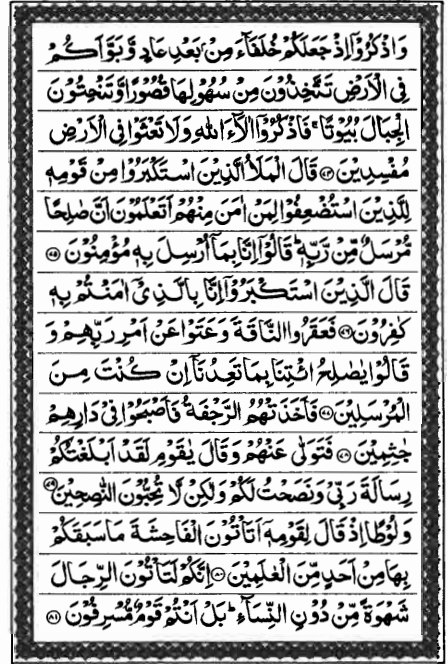 وَاذْكُرُوْۤا اِذْ جَعَلَكُمْ خُلَفَآءَ مِنْۢ بَعْدِ عَادٍ وَّبَوَّاَكُمْ
فِى الْاَرْضِ تَتَّخِذُوْنَ مِنْ سُهُوْلِهَا قُصُوْرًا وَّتَنْحِتُوْنَ
الْجِبَالَ بُيُوْتًا ۚ فَاذْكُرُوْۤا اٰلَآءَ اللّٰهِ وَلَا تَعْثَوْا فِى الْاَرْضِ
مُفْسِدِيْنَ ﴿۷۴﴾ قَالَ الْمَلَاُ الَّذِيْنَ اسْتَكْبَرُوْا مِنْ قَوْمِهٖ
لِلَّذِيْنَ اسْتُضْعِفُوْا لِمَنْ اٰمَنَ مِنْهُمْ اَتَعْلَمُوْنَ اَنَّ صٰلِحًا
مُّرْسَلٌ مِّنْ رَّبِّهٖ ؕ قَالُوْۤا اِنَّا بِمَاۤ اُرْسِلَ بِهٖ مُؤْمِنُوْنَ ﴿۷۵﴾
قَالَ الَّذِيْنَ اسْتَكْبَرُوْۤا اِنَّا بِالَّذِىْۤ اٰمَنْتُمْ بِهٖ
كٰفِرُوْنَ ﴿۷۶﴾ فَعَقَرُوا النَّاقَةَ وَعَتَوْا عَنْ اَمْرِ رَبِّهِمْ وَ
قَالُوْا يٰصٰلِحُ ائْتِنَا بِمَا تَعِدُنَاۤ اِنْ كُنْتَ مِنَ
الْمُرْسَلِيْنَ ﴿۷۷﴾ فَاَخَذَتْهُمُ الرَّجْفَةُ فَاَصْبَحُوْا فِىْ دَارِهِمْ
جٰثِمِيْنَ ﴿۷۸﴾ فَتَوَلّٰى عَنْهُمْ وَقَالَ يٰقَوْمِ لَقَدْ اَبْلَغْتُكُمْ
رِسَالَةَ رَبِّىْ وَنَصَحْتُ لَكُمْ وَلٰكِنْ لَّا تُحِبُّوْنَ النّٰصِحِيْنَ ﴿۷۹﴾
وَلُوْطًا اِذْ قَالَ لِقَوْمِهٖۤ اَتَاْتُوْنَ الْفَاحِشَةَ مَا سَبَقَكُمْ
بِهَا مِنْ اَحَدٍ مِّنَ الْعٰلَمِيْنَ ﴿۸۰﴾ اِنَّكُمْ لَتَاْتُوْنَ الرِّجَالَ
شَهْوَةً مِّنْ دُوْنِ النِّسَآءِ ؕ بَلْ اَنْتُمْ قَوْمٌ مُّسْرِفُوْنَ ﴿۸۱﴾